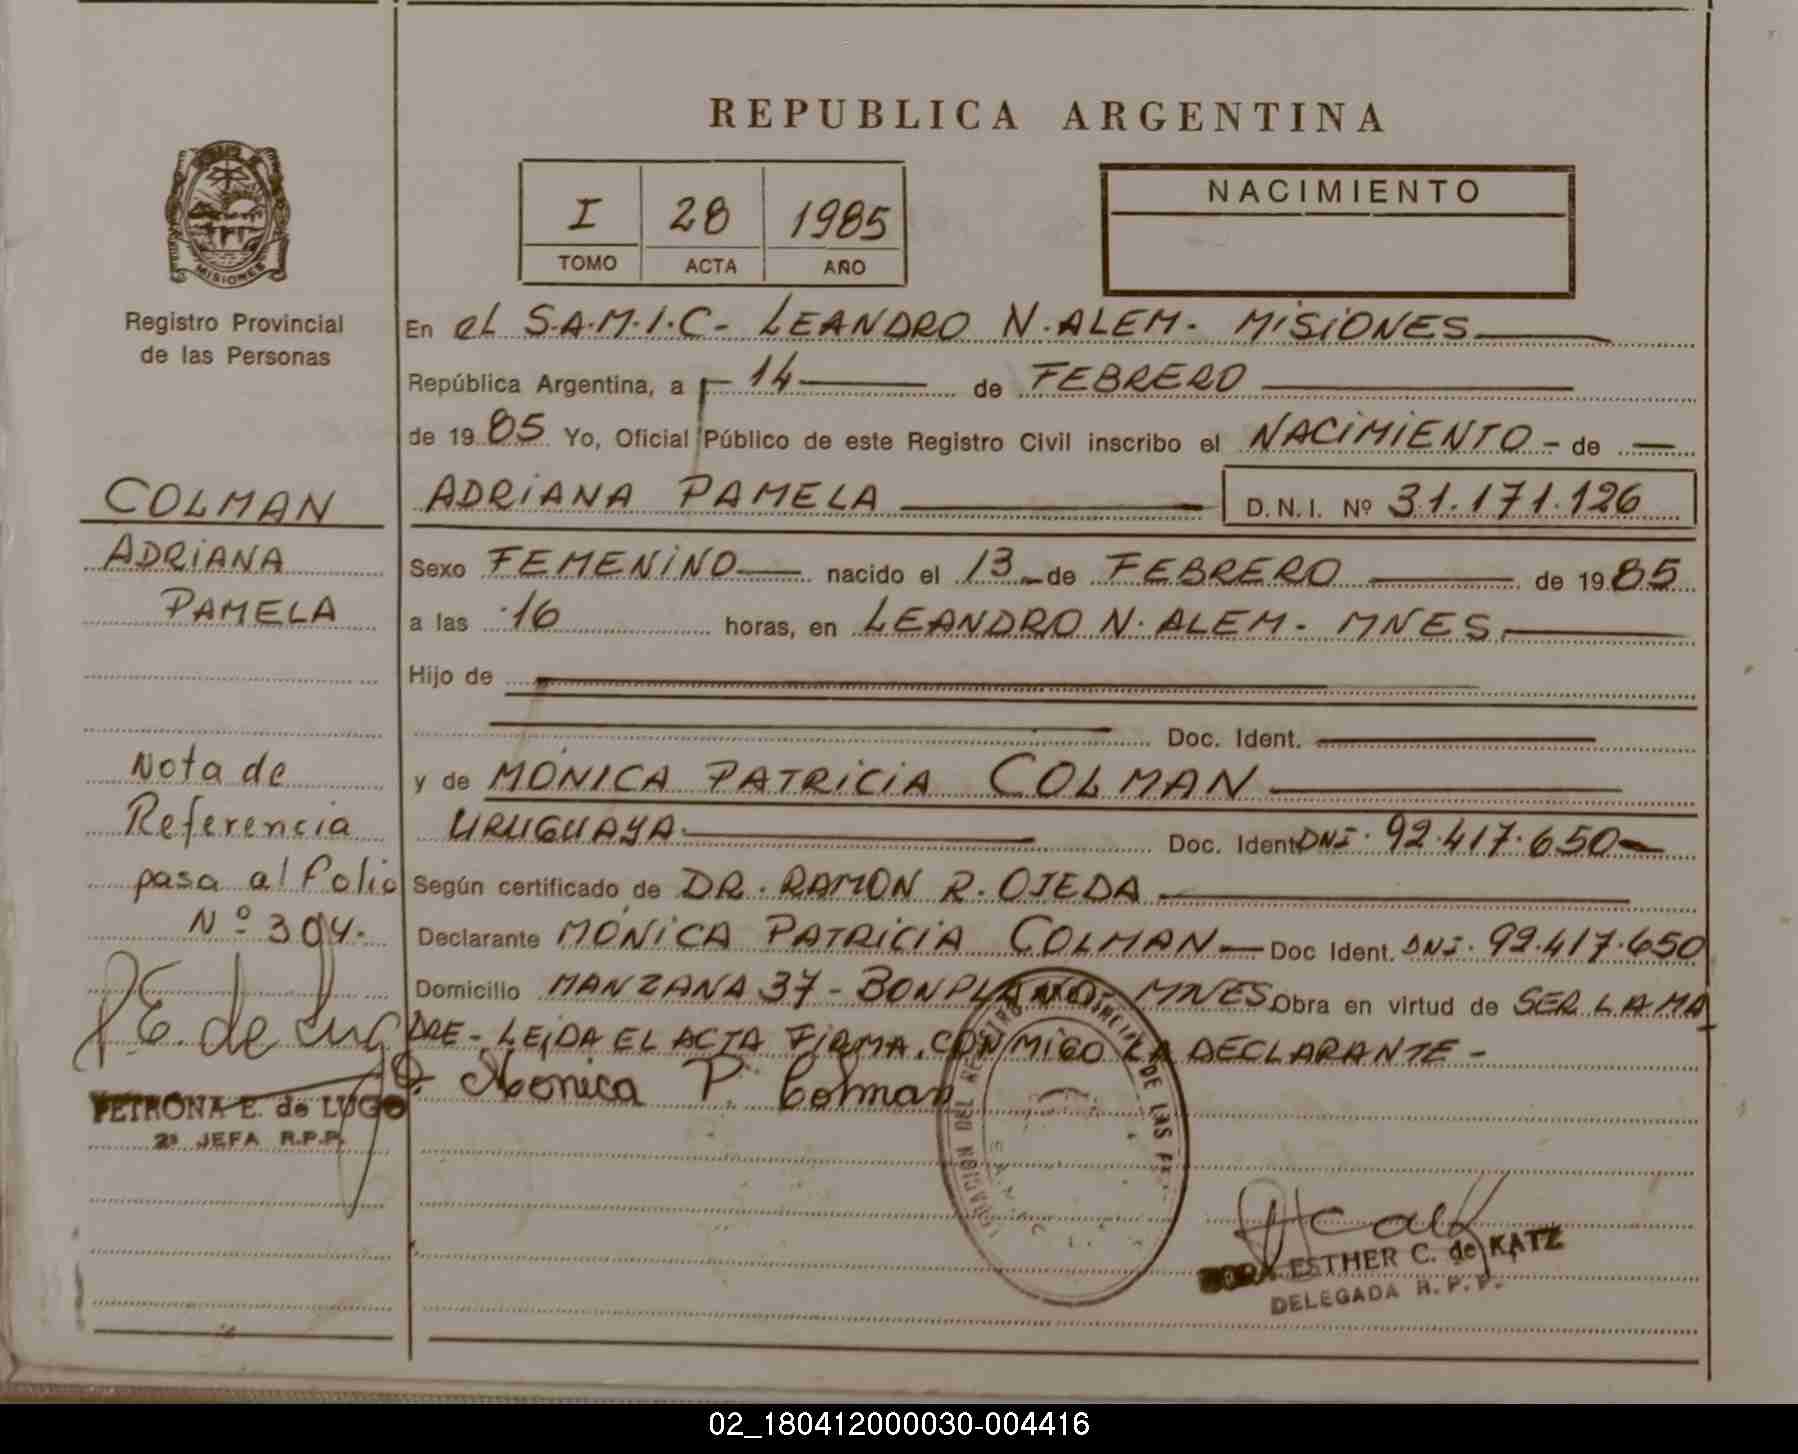 REPUBLICA ARGENTINA
I 28 1985
TOMO ACTA AÑO
NACIMIENTO
MISIONES
Registro Provincial
de las Personas
En el S.A.M.I.C- LEANDRO N. ALEM- MISIONES
República Argentina, a 14 de FEBRERO
de 1985 Yo, Oficial Público de este Registro Civil inscribo el NACIMIENTO - de
COLMAN
ADRIANA
PAMELA
ADRIANA PAMELA D.N.I. Nº 31.171.126
Sexo FEMENINO nacido el 13 de FEBRERO de 1985
a las 16 horas, en LEANDRO N. ALEM- MNES
Hijo de
Doc. Ident.
y de MÓNICA PATRICIA COLMAN
URUGUAYA Doc. Ident DNI. 92.417.650
Según certificado de DR. RAMON R. OJEDA
Declarante MÓNICA PATRICIA COLMAN Doc Ident. DNI. 92.417.650
Domicilio MANZANA 37 - BONPLAND - MNES Obra en virtud de SER LA MA
DRE - LEIDA EL ACTA FIRMA CONMIGO LA DECLARANTE -
Monica P. Colman
Nota de
Referencia
pasa al folio
Nº 394.
P.E. de Lugo
PETRONA E. de LUGO
2ª JEFA R.P.P.
DE LAS
ESTHER C. de KATZ
DELEGADA R.P.P.
02_180412000030-004416